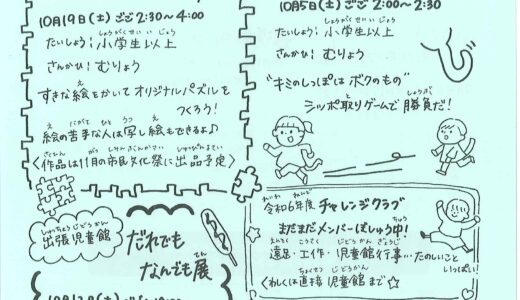 10月19日(土)ごご2:30～4:00
たいしょう:小学生以上
さんかひ:むりょう
すきな絵をかいてオリジナルパズルを
つくろう!
絵の苦手な人は写し絵もできるよ♪
<作品は11月の市民文化祭に出品予定>
10月5日(土)ごご2:00～2:30
たいしょう:小学生以上
さんかひ:むりょう
"キミのしっぽはボクのもの"
シッポ取りゲームで勝負だ!
出張児童館
だれでも
なんでも展
令和6年度 チャレンジクラブ
まだまだメンバーぼしゅう中!
遠足・工作・児童館行事…たのしいこと
いっぱい!
くわしくは直接児童館まで☆